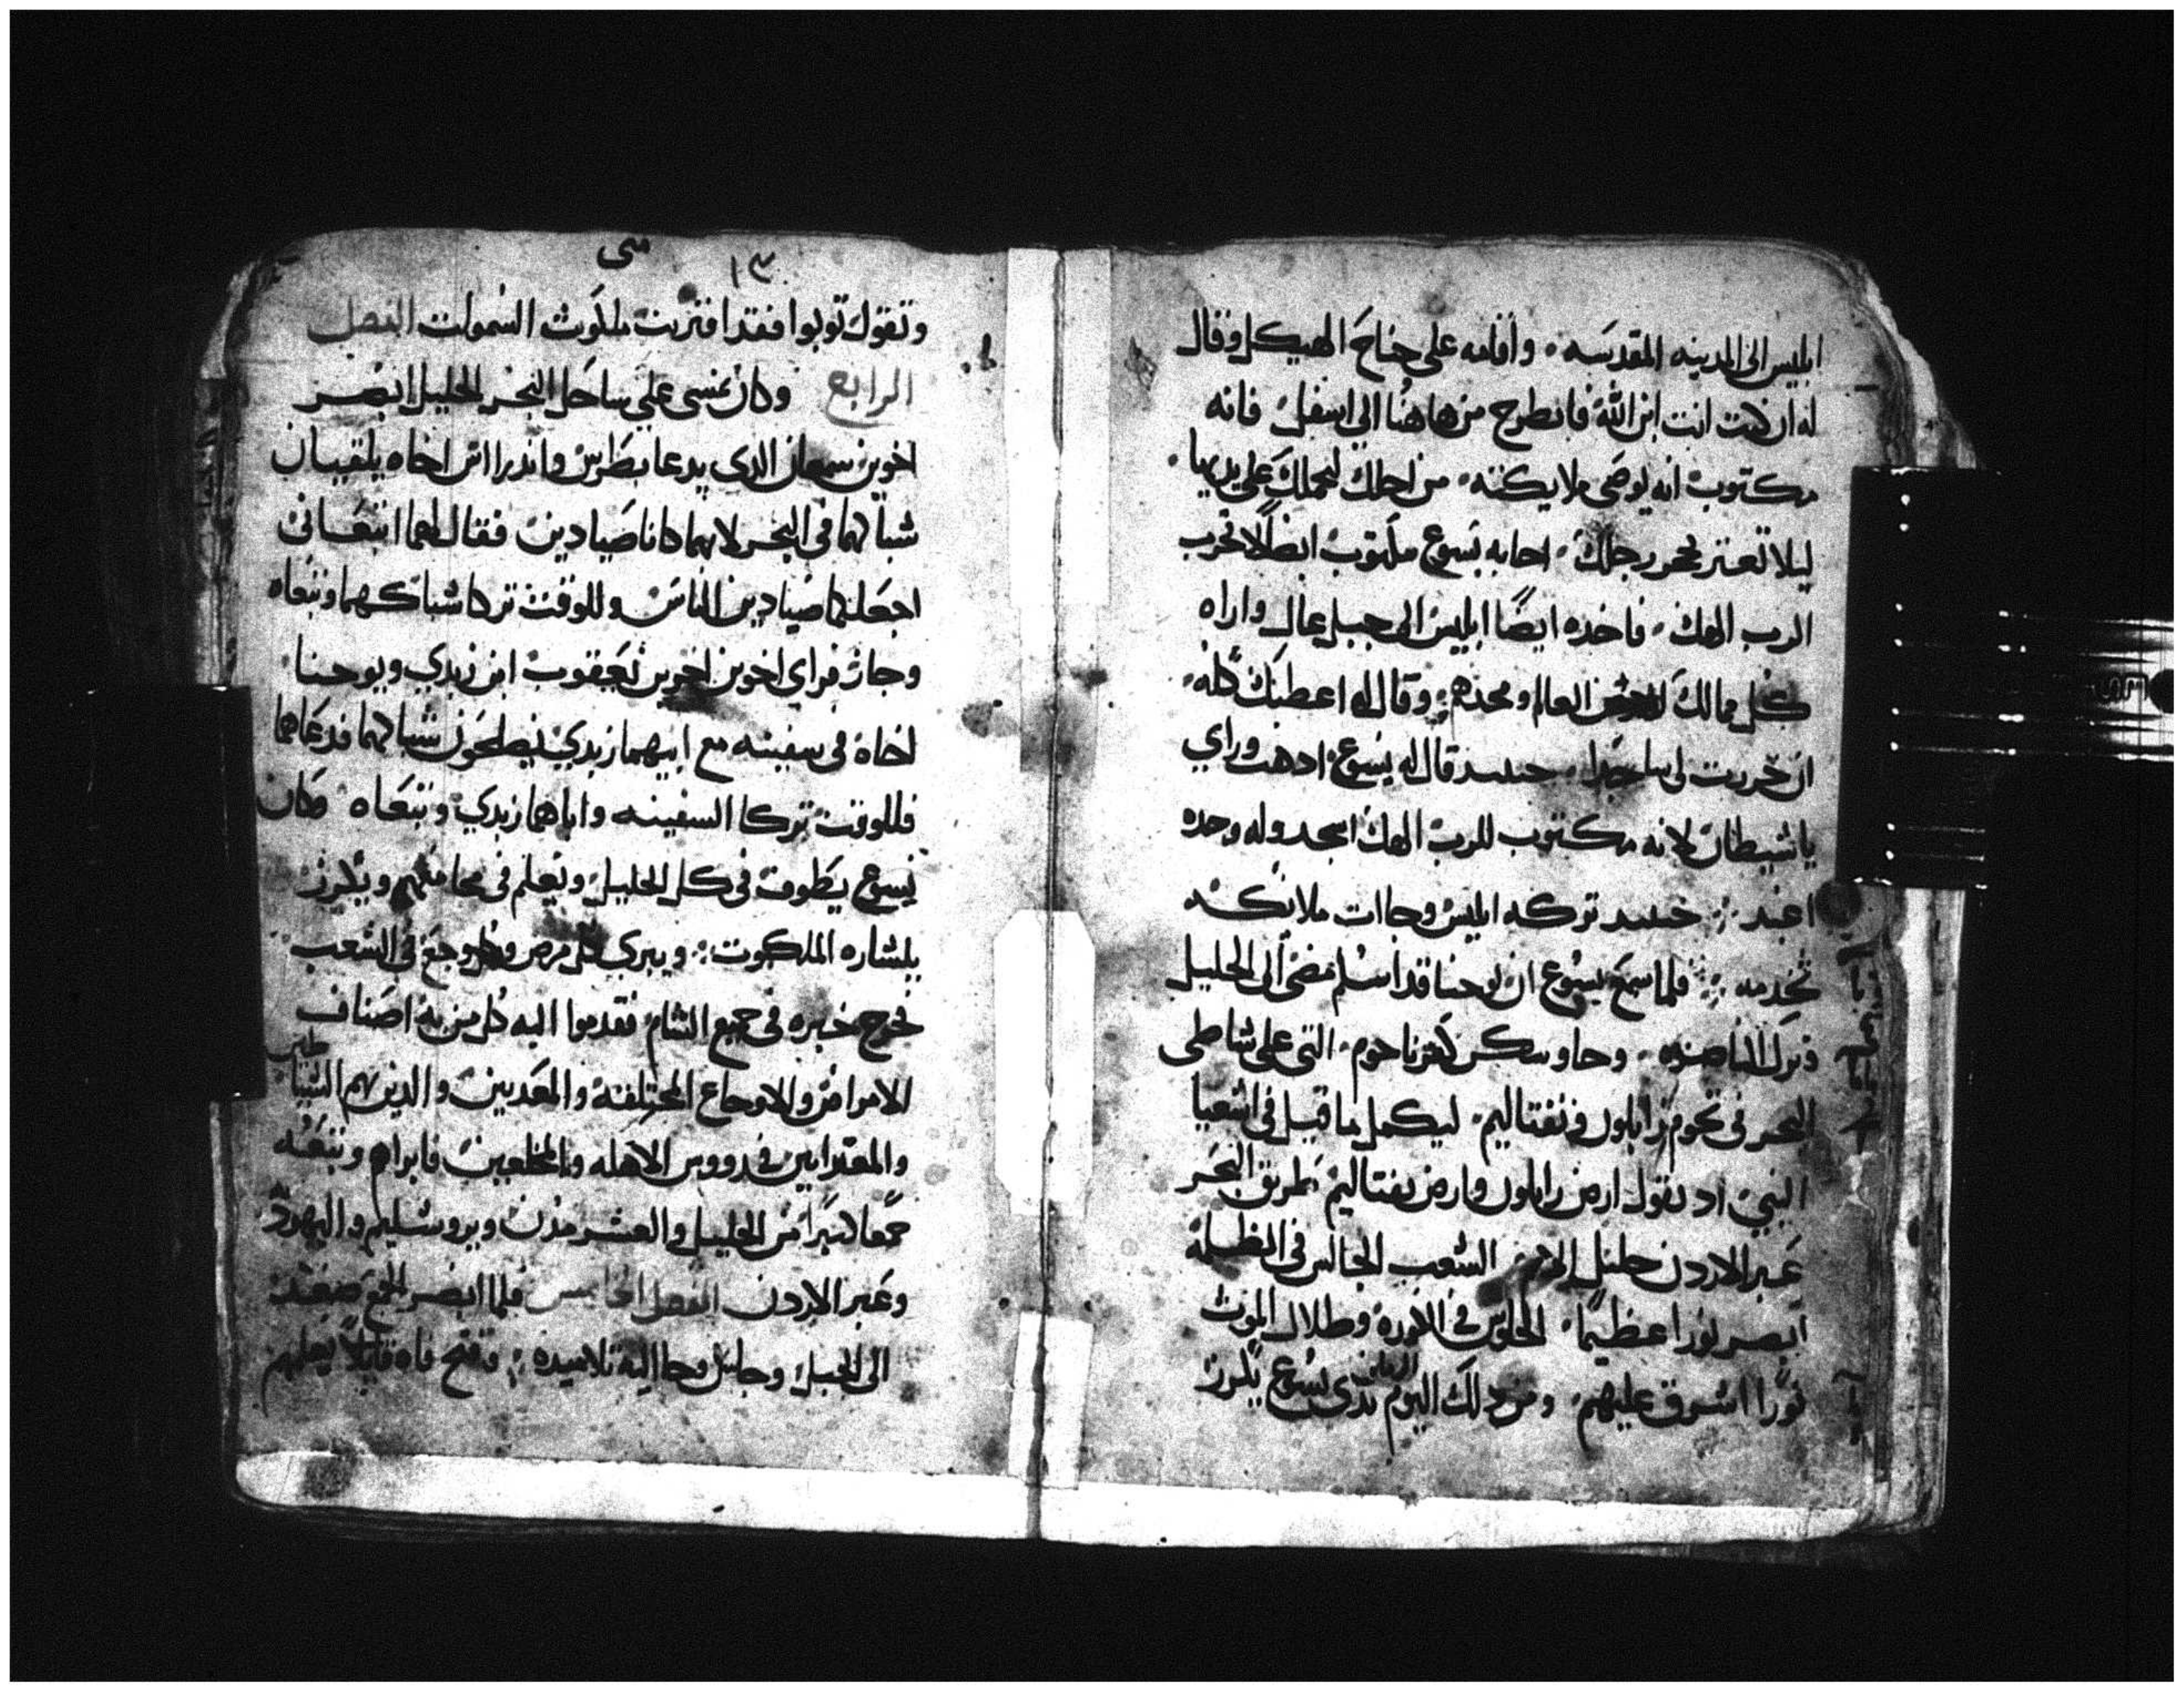 ابليس الى المدينه المقدسه . واقامه على جناح الهيكل وقال
له ان كنت انت ابن الله فانطرح من هاهنا الى اسفل فانه
مكتوب انه يوصى ملايكته . من اجلك لتحملك على يديها
ليلا تعتر بحجر رجلك . اجابه يسوع مكتوب ايضا لا تجرب
الرب الهك . فاخده ايضا ابليس الى جبل عال واراه
كل ممالك العالم ومجدهم وقال له اعطيك كله
ان خررت لى ساجدا . حينيد قال له يسوع ادهب وراي
يا شيطان لانه مكتوب للرب الهك اسجد وله وحده
اعبد . حينيد تركه ابليس وجاات ملايكه
تخدمه . فلما سمع يسوع ان يوحنا قد اسلم مضى الى الجليل
وترك الناصره . وجا وسكن كفرناحوم . التى على شاطى
البحر فى تخوم زابلون ونفتاليم . ليكمل ما قيل فى اشعيا
النبي اد يقول ارض زابلون وارض نفتاليم طريق البحر
عبر الاردن جليل الامم الشعب الجالس فى الظلمة
ابصر نورا عظيما . الجلوس فى الكوره وظلال الموت
نورا اشرق عليهم . ومن دلك اليوم بدى يسوع يكرز
متى
١٣
وتقول توبوا فقد اقتربت ملكوت السموات الفصل
الرابع وكان يمشى على ساحل البحر الجليل ابصر
اخوين سمعان الدى يدعا بطرس واندرااس اخاه يلقيان
شباكهما فى البحر لانهما كانا صيادين فقال لهما اتبعانى
اجعلكما صيادين الناس وللوقت تركا شباكهما وتبعاه
وجاز فراي اخوين اخرين يعقوب ابن زبدي ويوحنا
اخاه فى سفينه مع ابيهما زبدي يصلحون شباكهما فدعاهما
فللوقت تركا السفينه واباهما زبدي وتبعاه وكان
يسوع يطوف فى كل الجليل ويعلم فى مجامعهم ويكرز
ببشاره الملكوت . ويبري كل مرض وكل وجع فى الشعب
فخرج خبره فى جميع الشام فقدموا اليه كل من به اصناف
الامراض والاوجاع المختلفه والمعدبين والدين بهم الشياطين
والمعترايين فى رووس الاهله والمخلعين فابراهم وتبعه
جمعا كبيرا من الجليل والعشر مدن ويروشليم واليهوديه
وعبر الاردن الفصل الخامس فلما ابصر الجمع صعد
الى الجبل وجلس وجا اليه تلاميده . وفتح فاه قايلا يعلمهم